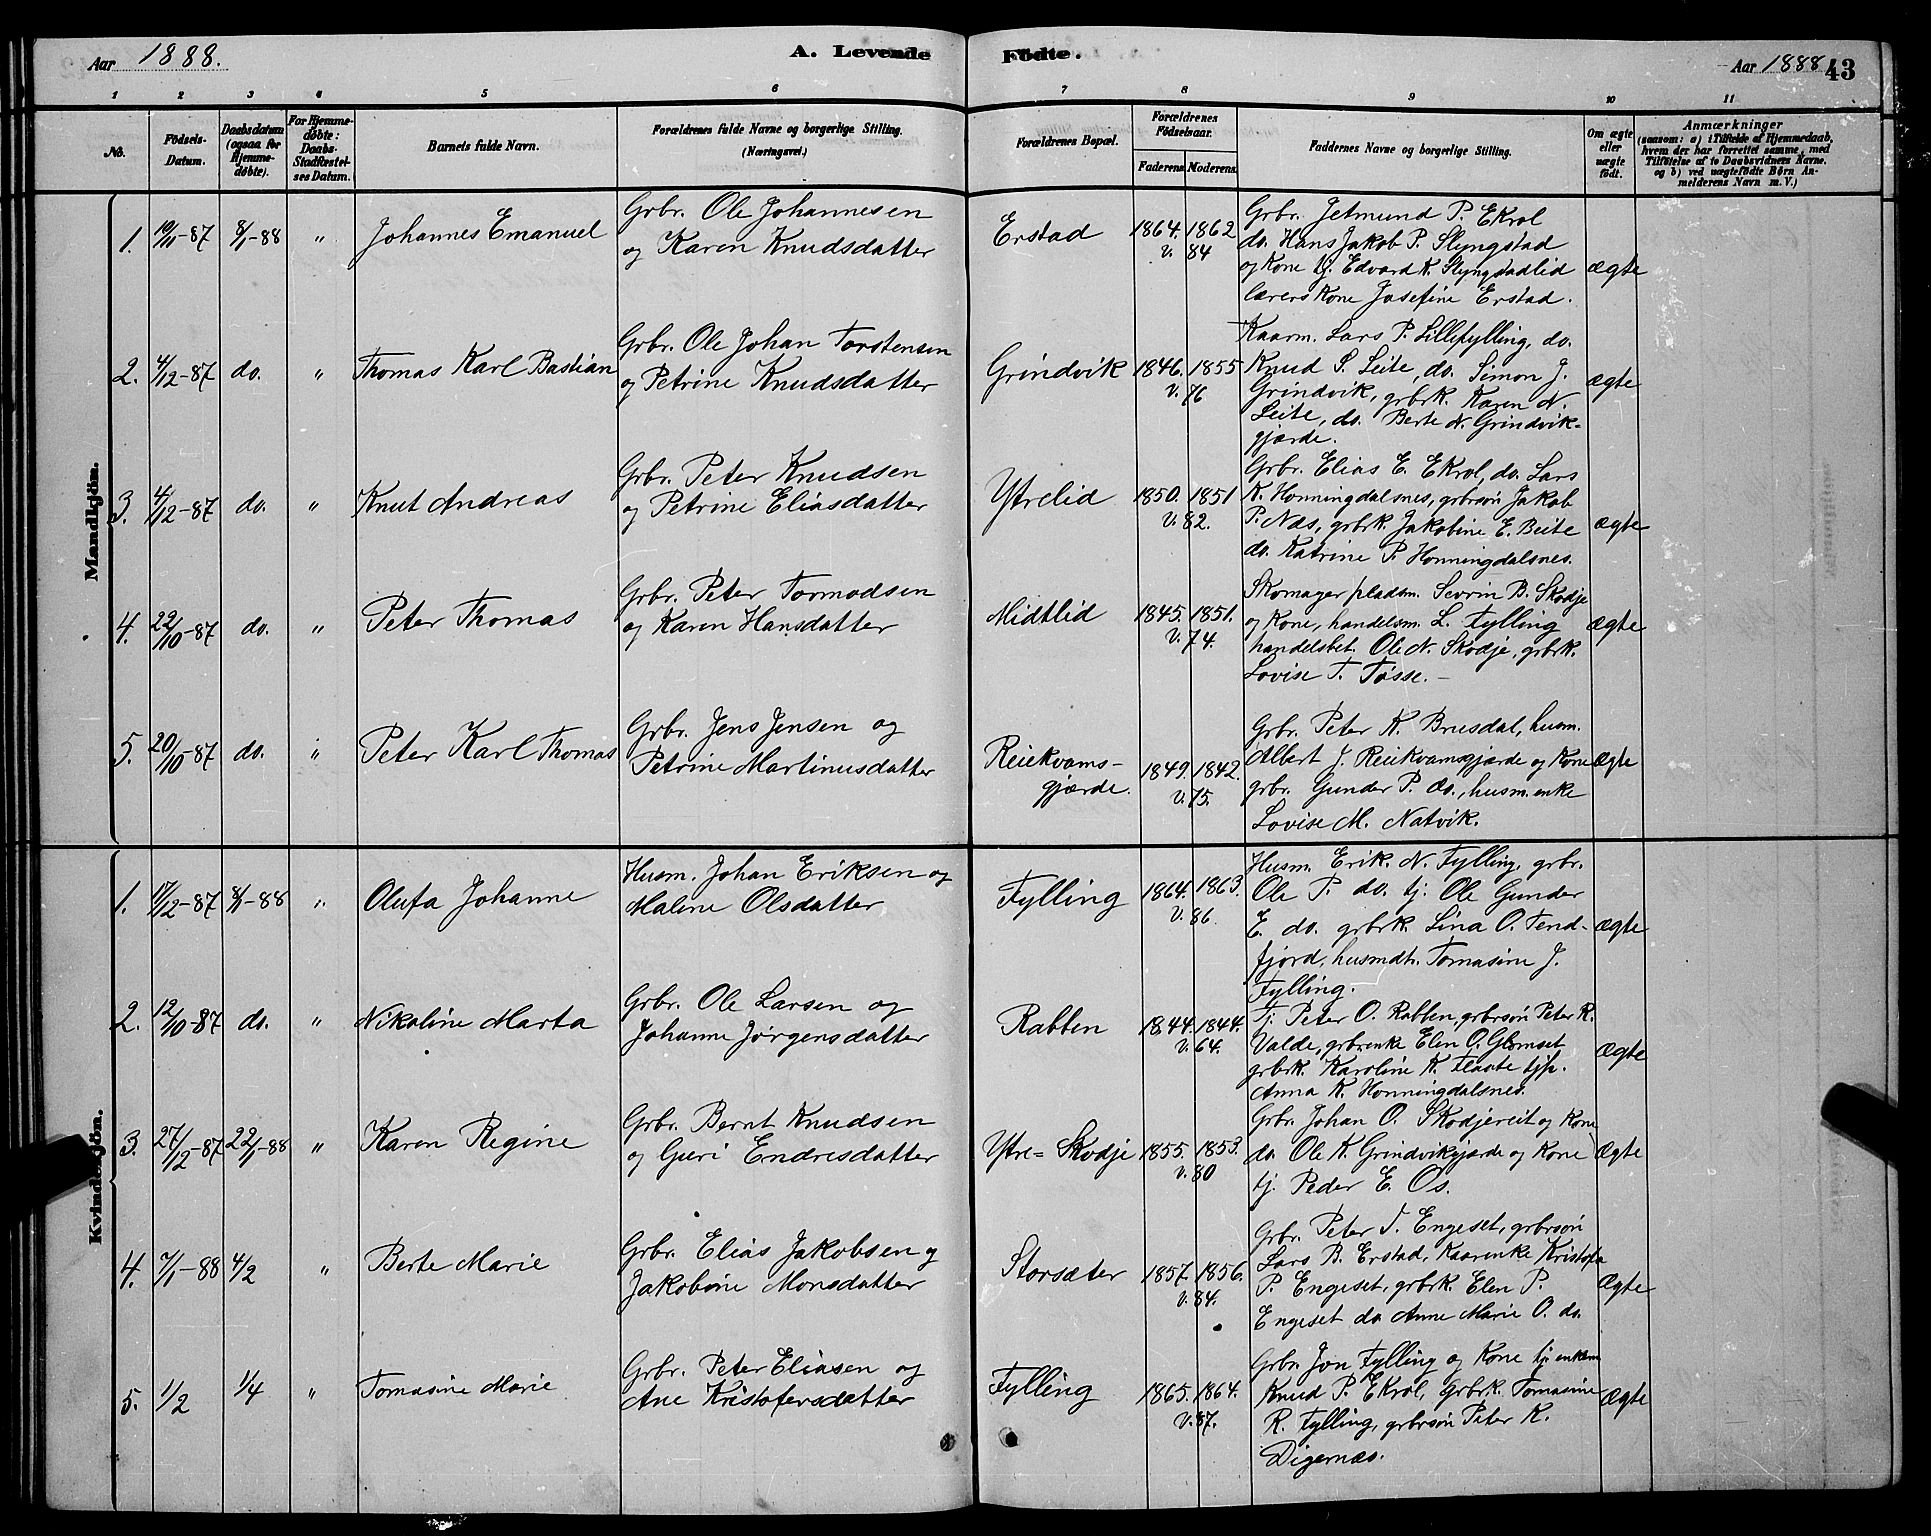 Aar 1888. A. Levende Födte. Aar 1888 43
1 2 3 4 5 6 7 8 9 10 11
No.
Födsels-Datum.
Daabsdatum (ogsaa for Hjemmedøbte).
For Hjemmedøbte: Daabs-Stadfæstelses Datum.
Barnets fulde Navn.
Forældrenes fulde Navne og borgerlige Stilling.
(Næringsvei.)
Forældrenes Bopæl.
Forældrenes Fødselsaar.
Faderens Moderens.
Faddernes Navne og borgerlige Stilling.
Om ægte eller uægte født.
Anmærkninger
(saasom: a) i Tilfælde af Hjemmedaab,
hvem der har forrettet samme, med
Tilføielse af to Daabsvidners Navne.
og b) ved uægtefødte Børn An-
melderens Navn m. V.)
Mandkjön.
1. 10/11-87 8/1-88 " Johannes Emanuel
Grbr. Ole Johannesen
og Karen Knudsdatter
Erstad 1864. 1862
v. 84
Grbr. Jetmund P. Ekrol
do. Hans Jakob P. Slyngstad
og Kone tj. Edvard K. Slyngstadlid
lærers Kone Josefine Erstad.
ægte
2. 4/12-87 do. " Thomas Karl Bastian
Grbr. Ole Johan Torstensen
og Petrine Knudsdatter
Grindvik 1846. 1855
v. 76
Kaarm. Lars P. Lillefylling, do.
Knud S. Leite, do. Simon J.
Grindvik, grbrk. Karen N.
Leite, do. Berte N. Grindvik-
gjærde.
ægte
3. 4/12-87 do. " Knut Andreas
Grbr. Peter Knudsen
og Petrine Eliasdatter
Ytrelid 1850. 1851
v. 82.
Grbr. Elias E. Ekrol, do. Lars
K. Honningdalsnes, grbrsøn Jakob
P. Næs, grbrk. Jakobine E. Beite
do. Katrine P. Honningdalsnes.
ægte
4. 22/10-87 do. " Peter Thomas
Grbr. Peter Tormodsen
og Karen Hansdatter
Midtlid 1845. 1851.
v. 74.
Skomager pladsm. Sevrin B. Skodje
og Kone, handelsm. L. Fylling
handelsbet. Ole N. Skodje, grbrk.
Lovise T. Tøsse.-
ægte
5. 20/10-87 do. " Peter Karl Thomas
Grbr. Jens Jensen og
Petrine Martinusdatter
Reiekvams-
gjærde. 1849. 1842.
v. 75.
Grbr. Peter K. Brusdal, husm.
Albert J. Reiekvamsgjærde og Kone
grbr. Gunder P. do., husm. enke
Lovise M. Natvik.
Ægte
Kvindekjön.
1. 17/12-87 8/1-88 " Olufa Johanne
Husm. Johan Eriksen og
Maline Olsdatter
Fylling 1864. 1863.
v. 86.
Husm. Erik. N. Fylling, grbr.
Ole P. do. tj. Ole Gunder
E. do. grbrk. Lina O. Tend-
fjord, husmdtr. Tomasine J.
Fylling.
Ægte
2. 12/10-87 do. " Nikoline Marta
Grbr. Ole Larsen og
Johanne Jørgensdatter
Rabben 1844. 1844.
v. 64.
Tj. Peter O. Rabben, grbrsøn Peter R.
Valde, grbrenke Elen O. Glomset
grbrk. Karoline K. Flaate tjp.
Anna K. Honningdalsnes.
Ægte
3. 27/12-87 22/1-88 " Karen Regine
Grbr. Bernt Knudsen
og Guri Endresdatter
Ytre= Skodje 1855. 1853.
v. 80
Grbr. Johan O. Skodjereit og Kone
do. Ole K. Grindvikgjærde og Kone
tj. Peder E. Os.
Ægte
4. 7/1-88 4/2 " Berte Marie
Grbr. Elias Jakobsen og
Jakobine Monsdatter
Storsæter 1857. 1856.
v. 84.
Grbr. Peter T. Engeset, grbrsøn
Lars B. Erstad, Kaarenke Kristofa
P. Engeset, grbrk. Elen P.
Engeset do Anne Marie O. do.
Ægte
5. 1/2 1/4 " Tomasine Marie
Grbr. Peter Eliasen og
Ane Kristofersdatter
Fylling 1865. 1864.
v. 87.
Grbr. Jon Fylling og Kone tj. enkem
Knud P. Ekrol, Grbrk. Tomasine
R. Fylling, grbrsøn Peter K.
Digernæs.
Ægte